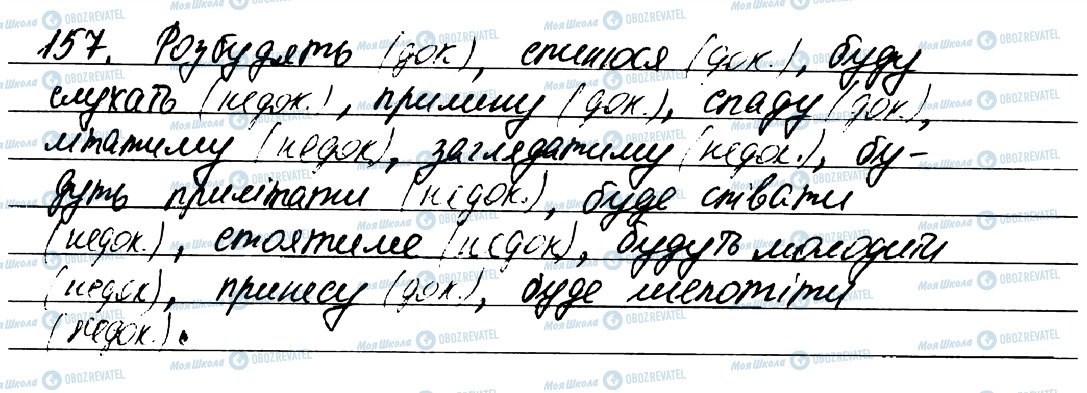 157. Розбудять (док), спинюся (док.), буду
слухать (недок.), прилину (док.), спаду (док.),
літатиму (недок), заглядатиму (недок.), бу-
дуть прилітати (недок.), буде співати
(недок.), стоятиме (недок), будуть молодити
(недок), принесу (док.), буде шепотіти
(недок.).